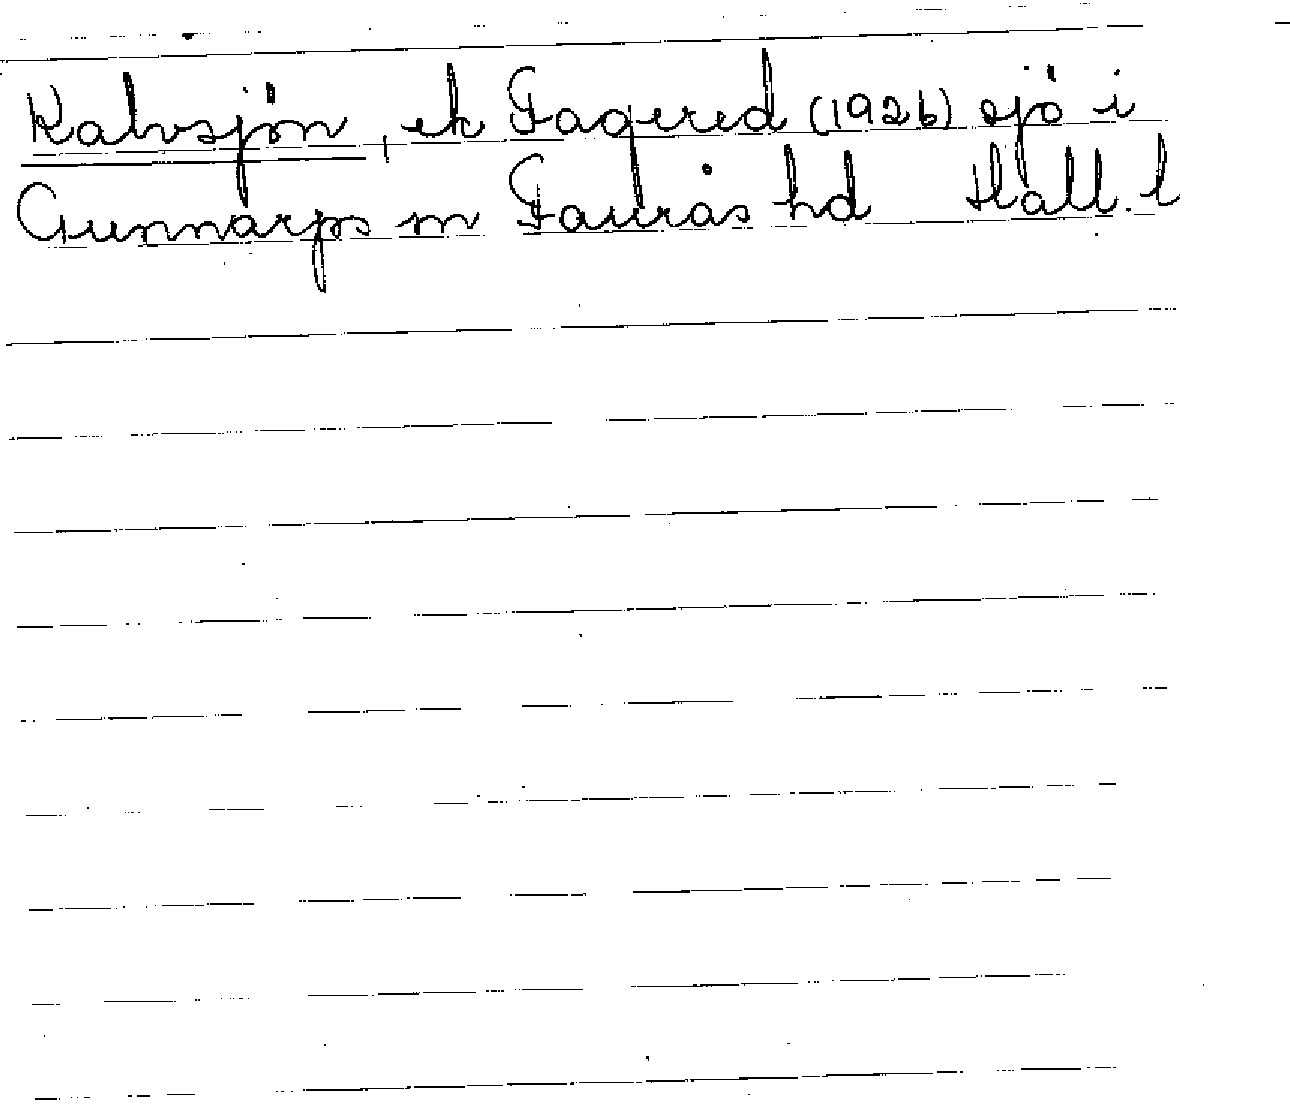 Kalvsjön, ek Fagered (1926) sjö i
Gunnarps sn Faurås hd Hall. l